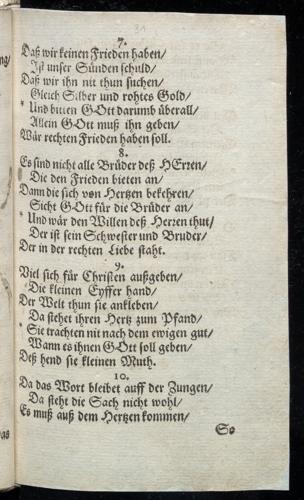 7.
Daß wir keinen Frieden haben/
Ist unser Sünden schuld/
Daß wir ihn nit thun suchen/
Gleich Silber und rohtes Gold/
Und bitten GOtt darumb überall/
Allein GOtt muß ihn geben/
Wär rechten Frieden haben soll.
8.
Es sind nicht alle Brüder deß HErren/
Die den Frieden bieten an/
Dann die sich von Hertzen bekehren/
Sicht GOtt für die Brüder an/
Und wär den Willen deß Herren thut/
Der ist sein Schwester und Bruder/
Der in der rechten Liebe staht.
9.
Viel sich für Christen außgeben/
Die kleinen Eyffer hand/
Der Welt thun sie ankleben/
Da stehet ihren Hertz zum Pfand/
Sie trachten nit nach dem ewigen gut/
Wann es ihnen GOtt soll geben/
Deß hend sie kleinen Muth.
10.
Da das Wort bleibet auff der Zungen/
Da steht die Sach nicht wohl/
Es muß auß dem Hertzen kommen/
So